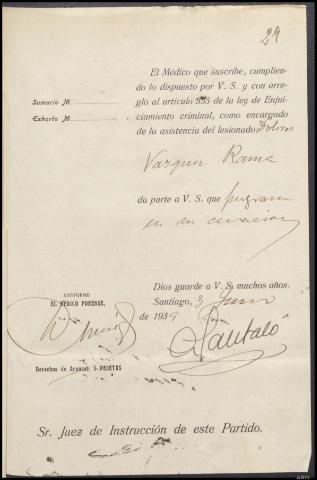 29
El Médico que suscribe, cumplien-
do lo dispuesto por V. S. y con arre-
Sumario N.
glo al artículo 355 de la ley de Enjui-
Exhorto N.
ciamiento criminal, como encargado
de la asistencia del lesionado Dolores
Vazquez Rama
da parte a V. S. que
en su curacion
Dios guarde a V. S. muchos años.
CONFORME:
EL MÉDICO FORENSE,
Santiago, 3 Junio
de 1939
Derechos de Arancel: 5 PESETAS
Sr. Juez de Instrucción de este Partido.